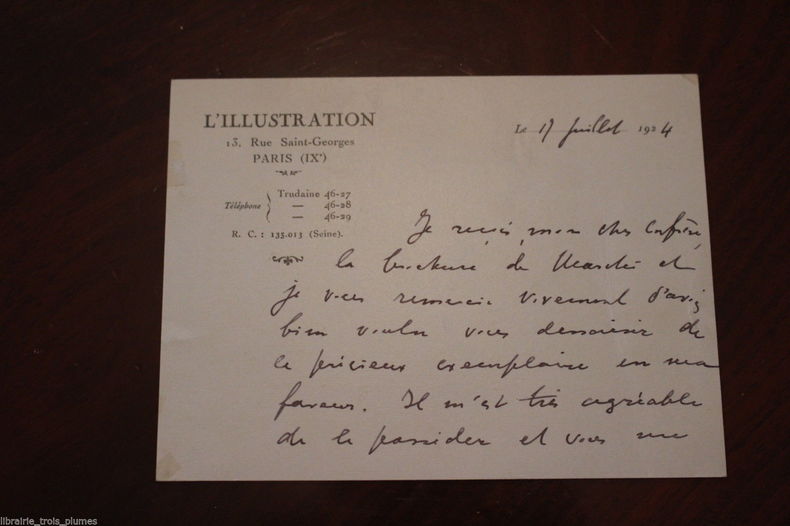 L'ILLUSTRATION
13, Rue Saint-Georges
PARIS (IXᵉ)
Téléphone
Trudaine 46-27
— 46-28
— 46-29
R. C. : 135.013 (Seine).
Le 17 Juillet 1924
Je reçois, mon cher Confrère,
la brochure de et
je vous remercie vivement d'avoir
bien voulu vous démunir de
ce précieux exemplaire en ma
faveur. Il m'est très agréable
de le posséder et vous me
librairie_trois_plumes